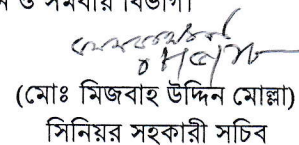 ও সমবায় বিভাগ।
(মোঃ মিজবাহ উদ্দিন মোল্লা)
সিনিয়র সহকারী সচিব